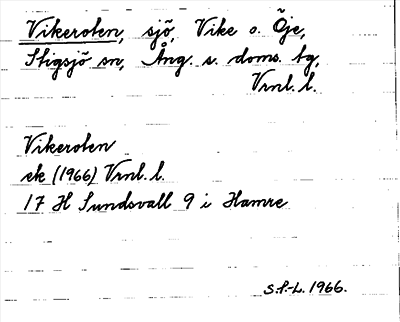 Vikeroten, sjö, Vike o. Öje,
Stigsjö sn, Ång. s. doms. tg,
Vrnl. l.
Vikeroten
ek (1966) Vrnl. l.
17 H Sundsvall 9 i Hamre
S.P-L. 1966.